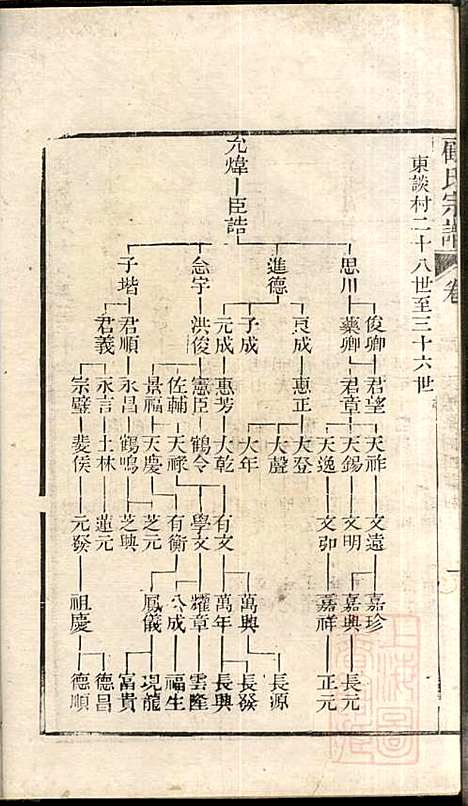 顧氏宗譜 卷
東談村二十八世至三十六世
允煒 臣誥
思川 進德 念宇 子堦
俊卿 藥卿 良成 子成 元成 洪俊 君順 君義
君望 君章 惠正 惠芳 憲臣 佐輔 景福 永昌 永言 宗璧
天祥 天錫 天逸 大登 大聲 大年 大乾 鶴令 天祿 天慶 鶴鳴 士林 斐侯
文遠 文明 文卯 有文 學文 有衡 芝元 芝興 蓮元 元發
嘉珍 嘉興 嘉祥 萬興 萬年 耀章 公成 鳳儀 祖慶
長元 正元 長源 長發 長興 雲隆 福生 現龍 富貴 德昌 德順